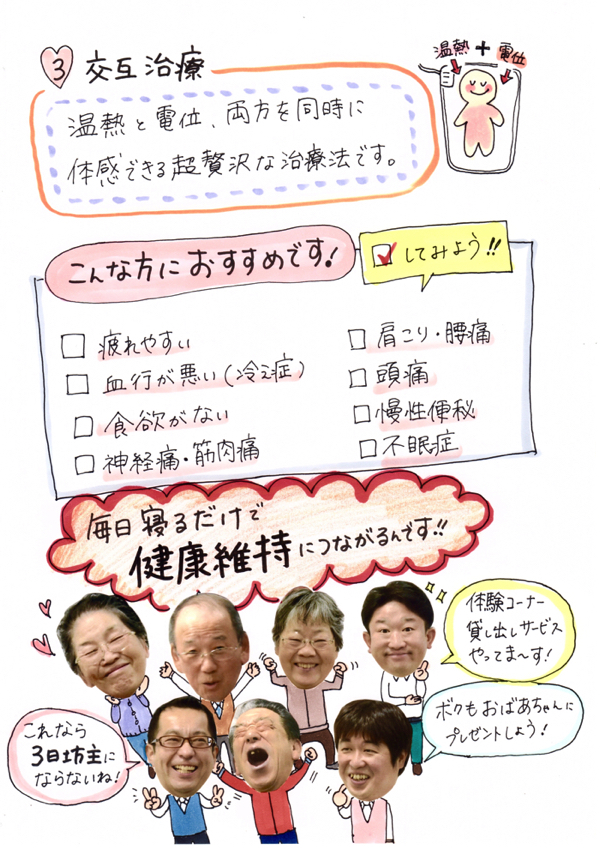 3 交互治療
温熱 + 電位
温熱と電位、両方を同時に
体感できる超贅沢な治療法です。
こんな方におすすめです!
してみよう!!
疲れやすい
血行が悪い(冷え症)
食欲がない
神経痛・筋肉痛
肩こり・腰痛
頭痛
慢性便秘
不眠症
毎日寝るだけで
健康維持につながるんです!!
体験コーナー
貸し出しサービス
やってま〜す!
これなら
3日坊主に
ならないね!
ボクもおばあちゃんに
プレゼントしよう!